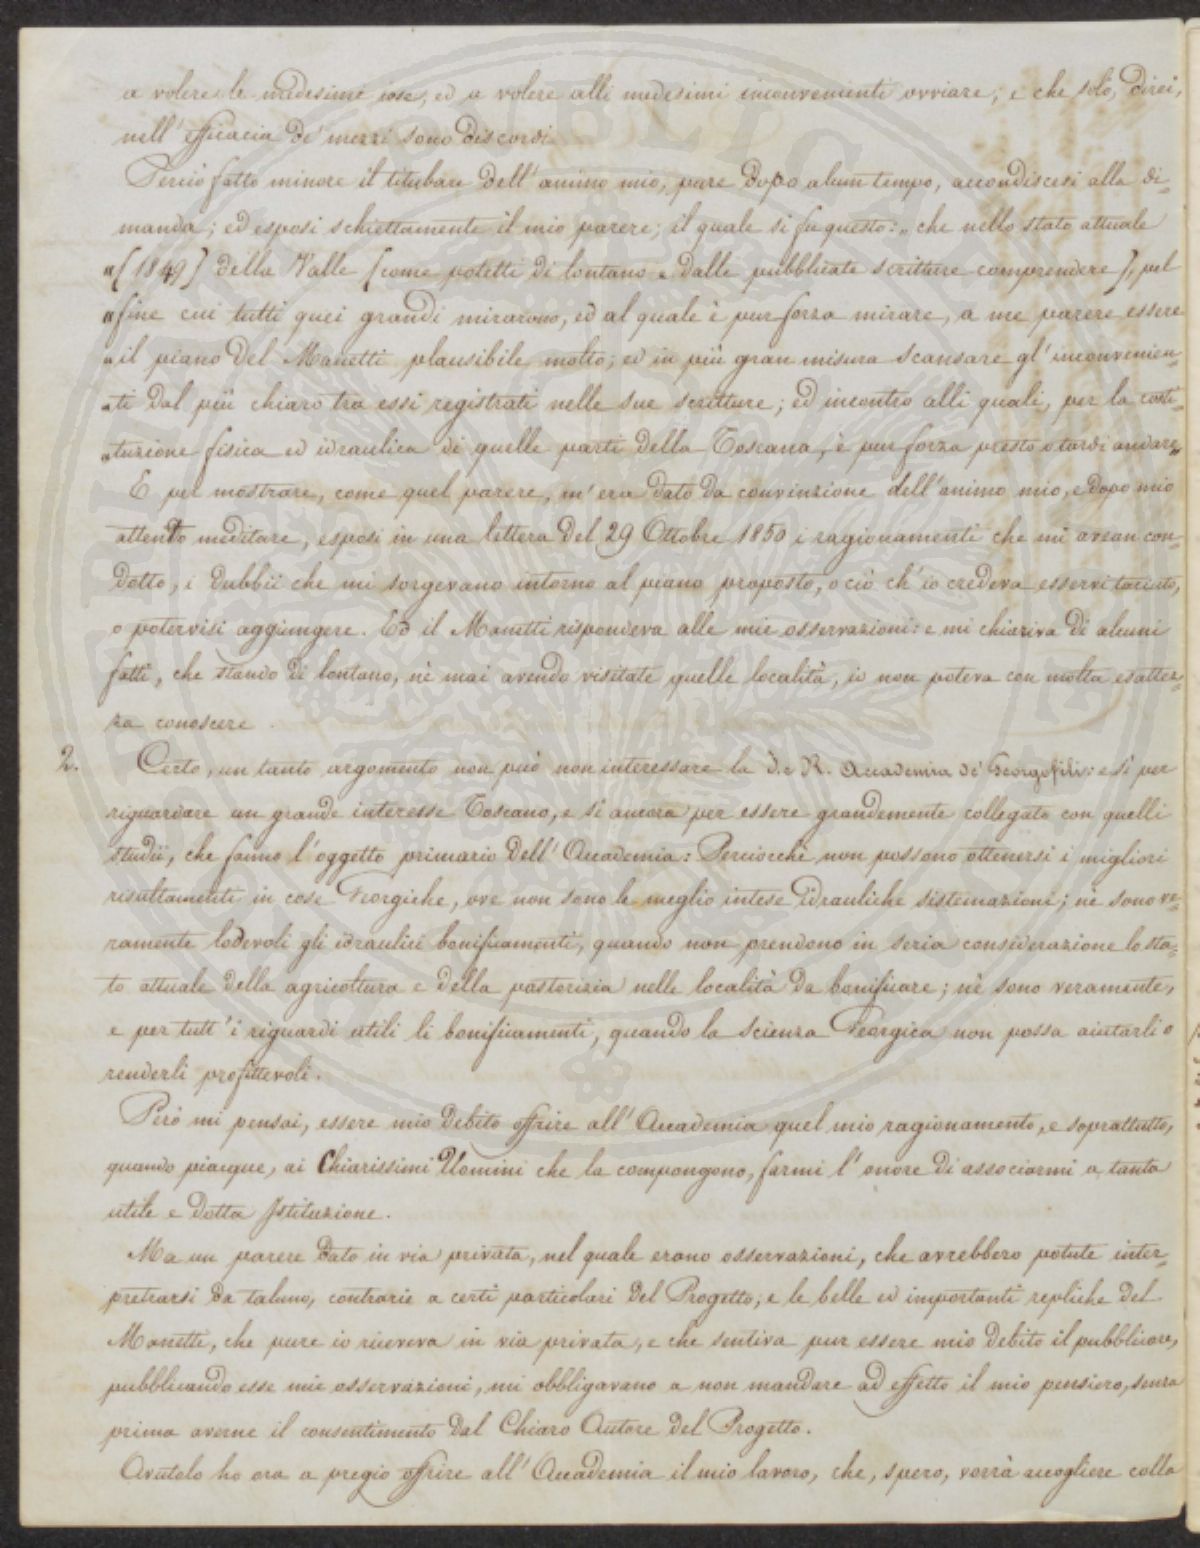 a volere le medesime cose, ed a volere alli medesimi inconvenienti ovviare; e che solo, direi,
nell'efficacia de' mezzi sono discordi.
Perciò fatto minore il titubare dell'animo mio, pure dopo alcun tempo, accondiscesi alla di-
manda; ed esposi schiettamente il mio parere; il quale si fu questo: „ che nello stato attuale
„ (1849) della Valle (come potetti di lontano e dalle pubblicate scritture comprendere), pel
„ fine cui tutti quei grandi mirarono, ed al quale è pur forza mirare, a me parere essere
„ il piano del Manetti plausibile molto; ed in più gran misura scansare gl'inconvenien-
„ ti dal più chiaro tra essi registrati nelle sue scritture; ed incontro alli quali, per la costi-
„ tuzione fisica ed idraulica di quelle parti della Toscana, è pur forza presto o tardi andare„
E pel mostrare, come quel parere, m'era dato da convinzione dell'animo mio, e dopo mio
attento meditare, esposi in una lettera del 29 Ottobre 1850 i ragionamenti che mi avean con-
dotto, i dubbii che mi sorgevano intorno al piano proposto, o ciò ch'io credeva esservi taciuto,
o potervisi aggiungere. Ed il Manetti rispondeva alle mie osservazioni: e mi chiariva di alcuni
fatti, che stando di lontano, nè mai avendo visitate quelle località, io non poteva con molta esattez-
za conoscere.
2. Certo, un tanto argomento non può non interessare la I. e R. Accademia de' Georgofili: e sì per
riguardare un grande interesse Toscano, e sì ancora per essere grandemente collegato con quelli
studii, che fanno l'oggetto primario dell'Accademia: Perciocchè non possono ottenersi i migliori
risultamenti in cose Georgiche, ove non sono le meglio intese Idrauliche sistemazioni; nè sono ve-
ramente lodevoli gli idraulici bonificamenti, quando non prendono in seria considerazione lo sta-
to attuale della agricoltura e della pastorizia nelle località da bonificare; nè sono veramente,
e per tutt'i riguardi utili li bonificamenti, quando la scienza Georgica non possa aiutarli o
renderli profittevoli.
Però mi pensai, essere mio debito offrire all'Accademia quel mio ragionamento, e soprattutto,
quando piacque, ai Chiarissimi Uomini che la compongono, farmi l'onore di associarmi a tanta
utile e dotta Istituzione.
Ma un parere dato in via privata, nel quale erano osservazioni, che avrebbero potute inter-
pretrarsi da taluno, contrarie a certi particolari del Progetto; e le belle ed importanti repliche del
Manetti, che pure io riceveva in via privata, e che sentiva pur essere mio debito il pubblicare,
pubblicando esse mie osservazioni, mi obbligavano a non mandare ad effetto il mio pensiero, senza
prima averne il consentimento dal Chiaro Autore del Progetto.
Avutolo ho ora a pregio offrire all'Accademia il mio lavoro, che, spero, vorrà accogliere colla